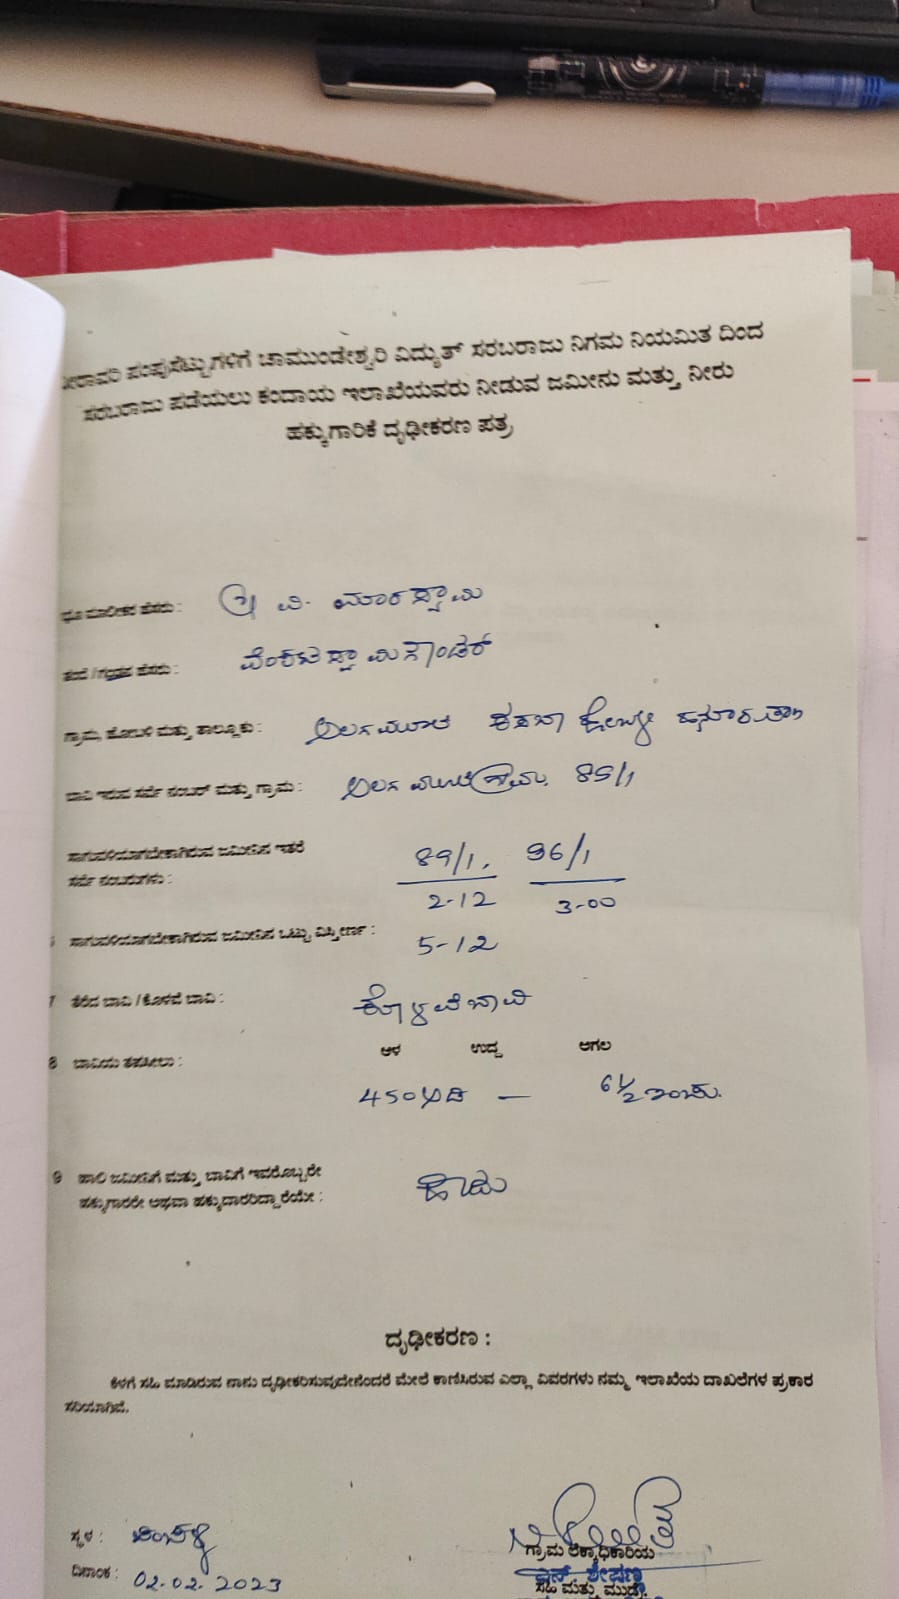 ನೀರಾವರಿ ಪಂಪುಸೆಟ್ಟುಗಳಿಗೆ ಚಾಮುಂಡೇಶ್ವರಿ ವಿದ್ಯುತ್ ಸರಬರಾಜು ನಿಗಮ ನಿಯಮಿತ ದಿಂದ
ಸರಬರಾಜು ಪಡೆಯಲು ಕಂದಾಯ ಇಲಾಖೆಯವರು ನೀಡುವ ಜಮೀನು ಮತ್ತು ನೀರು
ಹಕ್ಕುಗಾರಿಕೆ ದೃಢೀಕರಣ ಪತ್ರ
ಭೂ ಮಾಲೀಕರ ಹೆಸರು : ಶ್ರೀ ವಿ. ಮಾರಸ್ವಾಮಿ
ತಂದೆ / ಗಂಡನ ಹೆಸರು : ವೆಂಕಟಸ್ವಾಮಿಗೌಂಡರ್
ಗ್ರಾಮ, ಹೋಬಳಿ ಮತ್ತು ತಾಲ್ಲೂಕು : ಕಸಬಾ ಹೋಬಳಿ ಹನೂರು ತಾ॥
ಬಾವಿ ಇರುವ ಸರ್ವೆ ನಂಬರ್ ಮತ್ತು ಗ್ರಾಮ : ಗ್ರಾಮ. 89/1
ಸಾಗುವಳಿಯಾಗಬೇಕಾಗಿರುವ ಜಮೀನಿನ ಇತರೆ
ಸರ್ವೆ ನಂಬರುಗಳು : 89/1, 96/1
2-12 3-00
ಸಾಗುವಳಿಯಾಗಬೇಕಾಗಿರುವ ಜಮೀನಿನ ಒಟ್ಟು ವಿಸ್ತೀರ್ಣ : 5-12
7 ತೆರೆದ ಬಾವಿ / ಕೊಳವೆ ಬಾವಿ : ಕೊಳವೆಬಾವಿ
8 ಬಾವಿಯ ತಪಸೀಲು : ಆಳ ಉದ್ದ ಅಗಲ
450 ಅಡಿ — 6½ ಇಂಚು.
9 ಹಾಲಿ ಜಮೀನಿಗೆ ಮತ್ತು ಬಾವಿಗೆ ಇವರೊಬ್ಬರೇ
ಹಕ್ಕುಗಾರರೇ ಅಥವಾ ಹಕ್ಕುದಾರರಿದ್ದಾರೆಯೇ : ಹೌದು
ದೃಢೀಕರಣ :
ಕೆಳಗೆ ಸಹಿ ಮಾಡಿರುವ ನಾನು ದೃಢೀಕರಿಸುವುದೇನೆಂದರೆ ಮೇಲೆ ಕಾಣಿಸಿರುವ ಎಲ್ಲಾ ವಿವರಗಳು ನಮ್ಮ ಇಲಾಖೆಯ ದಾಖಲೆಗಳ ಪ್ರಕಾರ
ಸರಿಯಾಗಿದೆ.
ಸ್ಥಳ :
ಗ್ರಾಮ ಲೆಕ್ಕಾಧಿಕಾರಿಯ
ದಿನಾಂಕ : 02.02.2023
ಎನ್. ಶೇಷಣ್ಣ
ಸಹಿ ಮತ್ತು ಮುದ್ರೆ